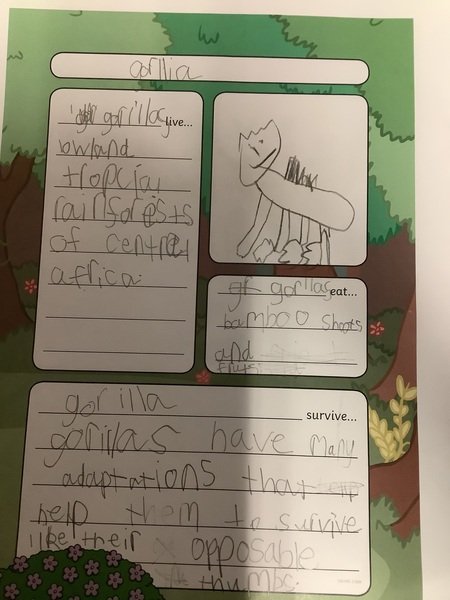 gorllia
gorillas live...
lowland
tropcial
rainforests
of central
africa.
gorillas eat...
bamboo shoots
and
fruits
gorilla survive...
gorillas have many
adaptations that
help them to survive
like their opposable
thumbs.